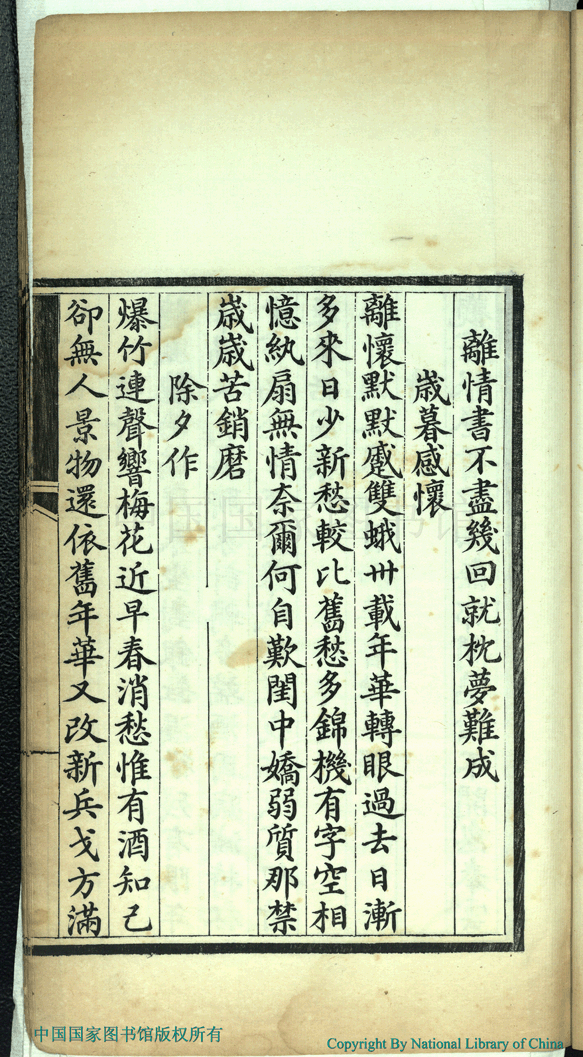 離情書不盡幾回就枕夢難成
歲暮感懷
離懷默默蹙雙蛾卅載年華轉眼過去日漸
多來日少新愁較比舊愁多錦機有字空相
憶紈扇無情奈爾何自歎閨中嬌弱質那禁
歲歲苦銷磨
除夕作
爆竹連聲響梅花近早春消愁惟有酒知己
卻無人景物還依舊年華又改新兵戈方滿
中国国家图书馆
中国国家图书馆版权所有
Copyright By National Library of China